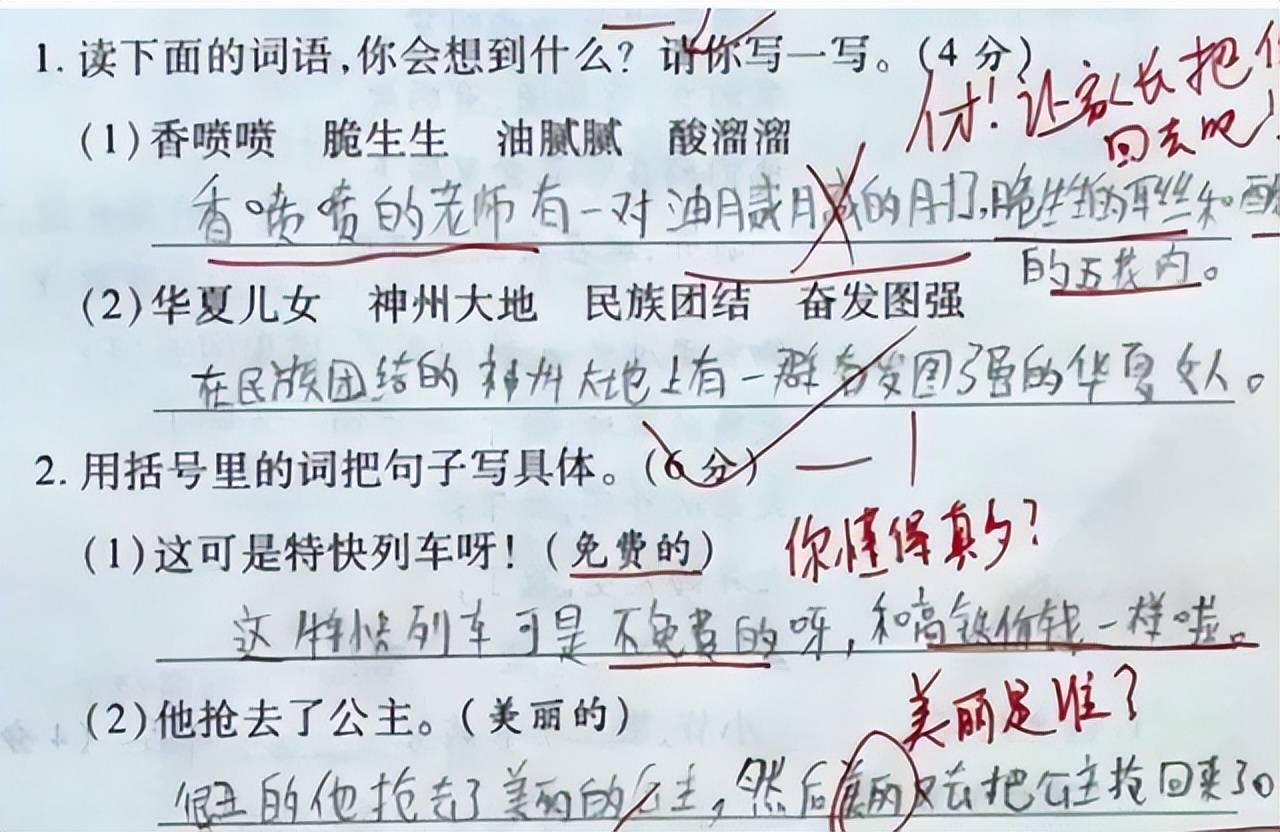 1. 读下面的词语,你会想到什么?请你写一写。(4分)
人才!让家长把你
回去吧!
(1)香喷喷 脆生生 油腻腻 酸溜溜
香喷喷的老师有一对油腻腻的肘,脆生生的耳丝和酸
的五花肉。
(2)华夏儿女 神州大地 民族团结 奋发图强
在民族团结的神州大地上有一群奋发图强的华夏女人。
2. 用括号里的词把句子写具体。(6分) —1
(1)这可是特快列车呀!(免费的)
你懂得真多?
这特快列车可是不免费的呀,和高铁价钱一样啦。
(2)他抢去了公主。(美丽的)
美丽是谁?
很丑的他抢去了美丽的公主,然后美丽又去把公主抢回来了。